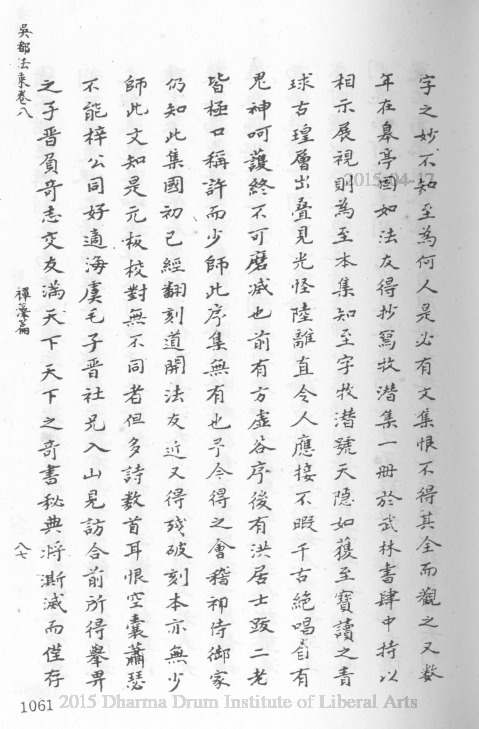 字之妙不知至為何人是必有文集恨不得其全而觀之又數
年在皋亭因如法友得抄寫牧潛集一冊於武林書肆中持以
相示展視則為至本集知至字牧潛號天隱如獲至寶讀之青
球古瑝層出疊見光怪陸離直令人應接不暇千古絕唱自有
鬼神呵護終不可磨滅也前有方虛谷序後有洪居士跋二老
皆極口稱許而少師此序集無有也予今得之會稽祁侍御家
仍知此集國初已經翻刻道開法友近又得殘破刻本亦無少
師此文知是元板校對無不同者但多詩數首耳恨空囊蕭瑟
不能梓公同好適海虞毛子晉社兄入山見訪合前所得舉畀
之子晉負奇志交友滿天下天下之奇書秘典將澌滅而僅存
吳都法乘卷八
禪藻篇
八七
1061
2015-04-17
2015 Dharma Drum Institute of Liberal Arts